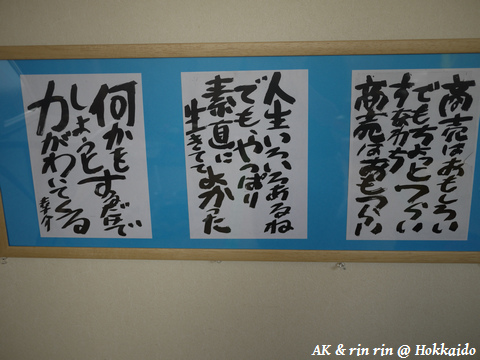 商売はおもしろい
でもちょっとつらい
すなわち
商売はおもつらい
人生いろいろあるね
でもやっぱり
素直に
生きてて
よかった
何かを
しようと
するだけで
力がわいてくる
AK & rin rin @ Hokkaido